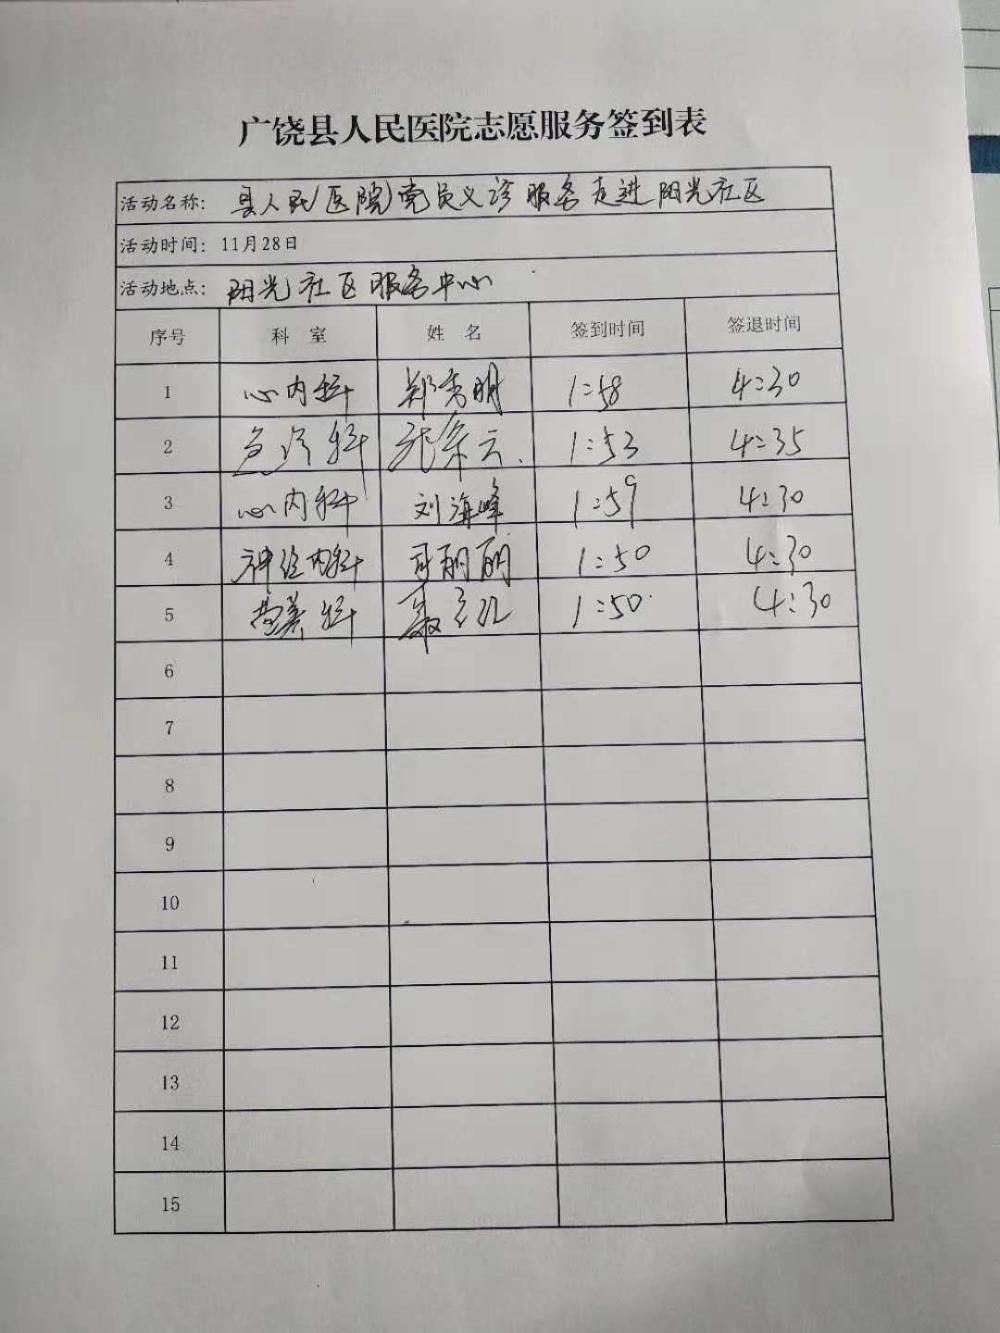 广饶县人民医院志愿服务签到表
活动名称: 县人民医院党员义诊服务走进阳光社区
活动时间: 11月28日
活动地点: 阳光社区服务中心
序号 科室 姓名 签到时间 签退时间
1 心内科 郑秀明 1:58 4:30
2 1:53 4:35
3 心内科 刘海峰 1:59 4:30
4 神经内科 丽丽 1:50 4:30
5 营养科 聂 1:50 4:30
6
7
8
9
10
11
12
13
14
15